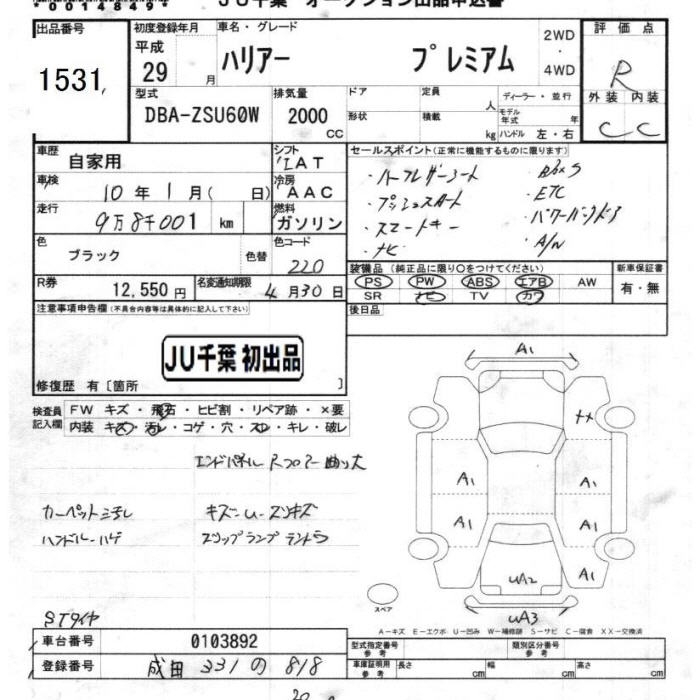 *00148494*
JU千葉 オークション出品申込書
出品番号
1531
初度登録年月
平成
29 月
車名・グレード
ハリアー プレミアム
2WD
・
4WD
評価点
R
外装 内装
C C
型式
DBA-ZSU60W
排気量
2000
CC
ドア
形状
定員
人
積載
kg
ディーラー・並行
モデル年式 年
ハンドル 左・右
車歴
自家用
シフト
IAT
セールスポイント(正常に機能するものに限ります)
・ハーフレザーシート
・プッシュスタート
・スマートキー
・ナビ
・ETC
・パワーバックドア
・A/N
車検
10年1月( 日)
冷房
AAC
走行
9万8千001 km
燃料
ガソリン
色
ブラック
色替
色コード
220
装備品(純正品に限り○をつけてください)
PS PW ABS エアB AW
SR ナビ TV カワ
新車保証書
有・無
R券
12,550円
名変通知期限
4月30日
後日品
注意事項申告欄(不具合内容等は具体的に記入して下さい)
JU千葉 初出品
修復歴 有〔箇所 〕
検査員記入欄
FW キズ・飛石・ヒビ割・リペア跡・×要
内装 キズ・汚レ・コゲ・穴・スレ・キレ・破レ
エンドパネル Rフロアー曲り大
カーペット汚れ
ハンドルハゲ
STタイヤ
A1
××
A1
A1
A1
A1
A1
UA2
UA3
スペア
A-キズ E-エクボ U-凹み W-補修跡 S-サビ C-腐食 XX-交換済
車台番号
0103892
登録番号
成田 331 の 818
型式指定番号
参考
類別区分番号
参考
車庫証明用
参考
長さ cm
幅 cm
高さ cm